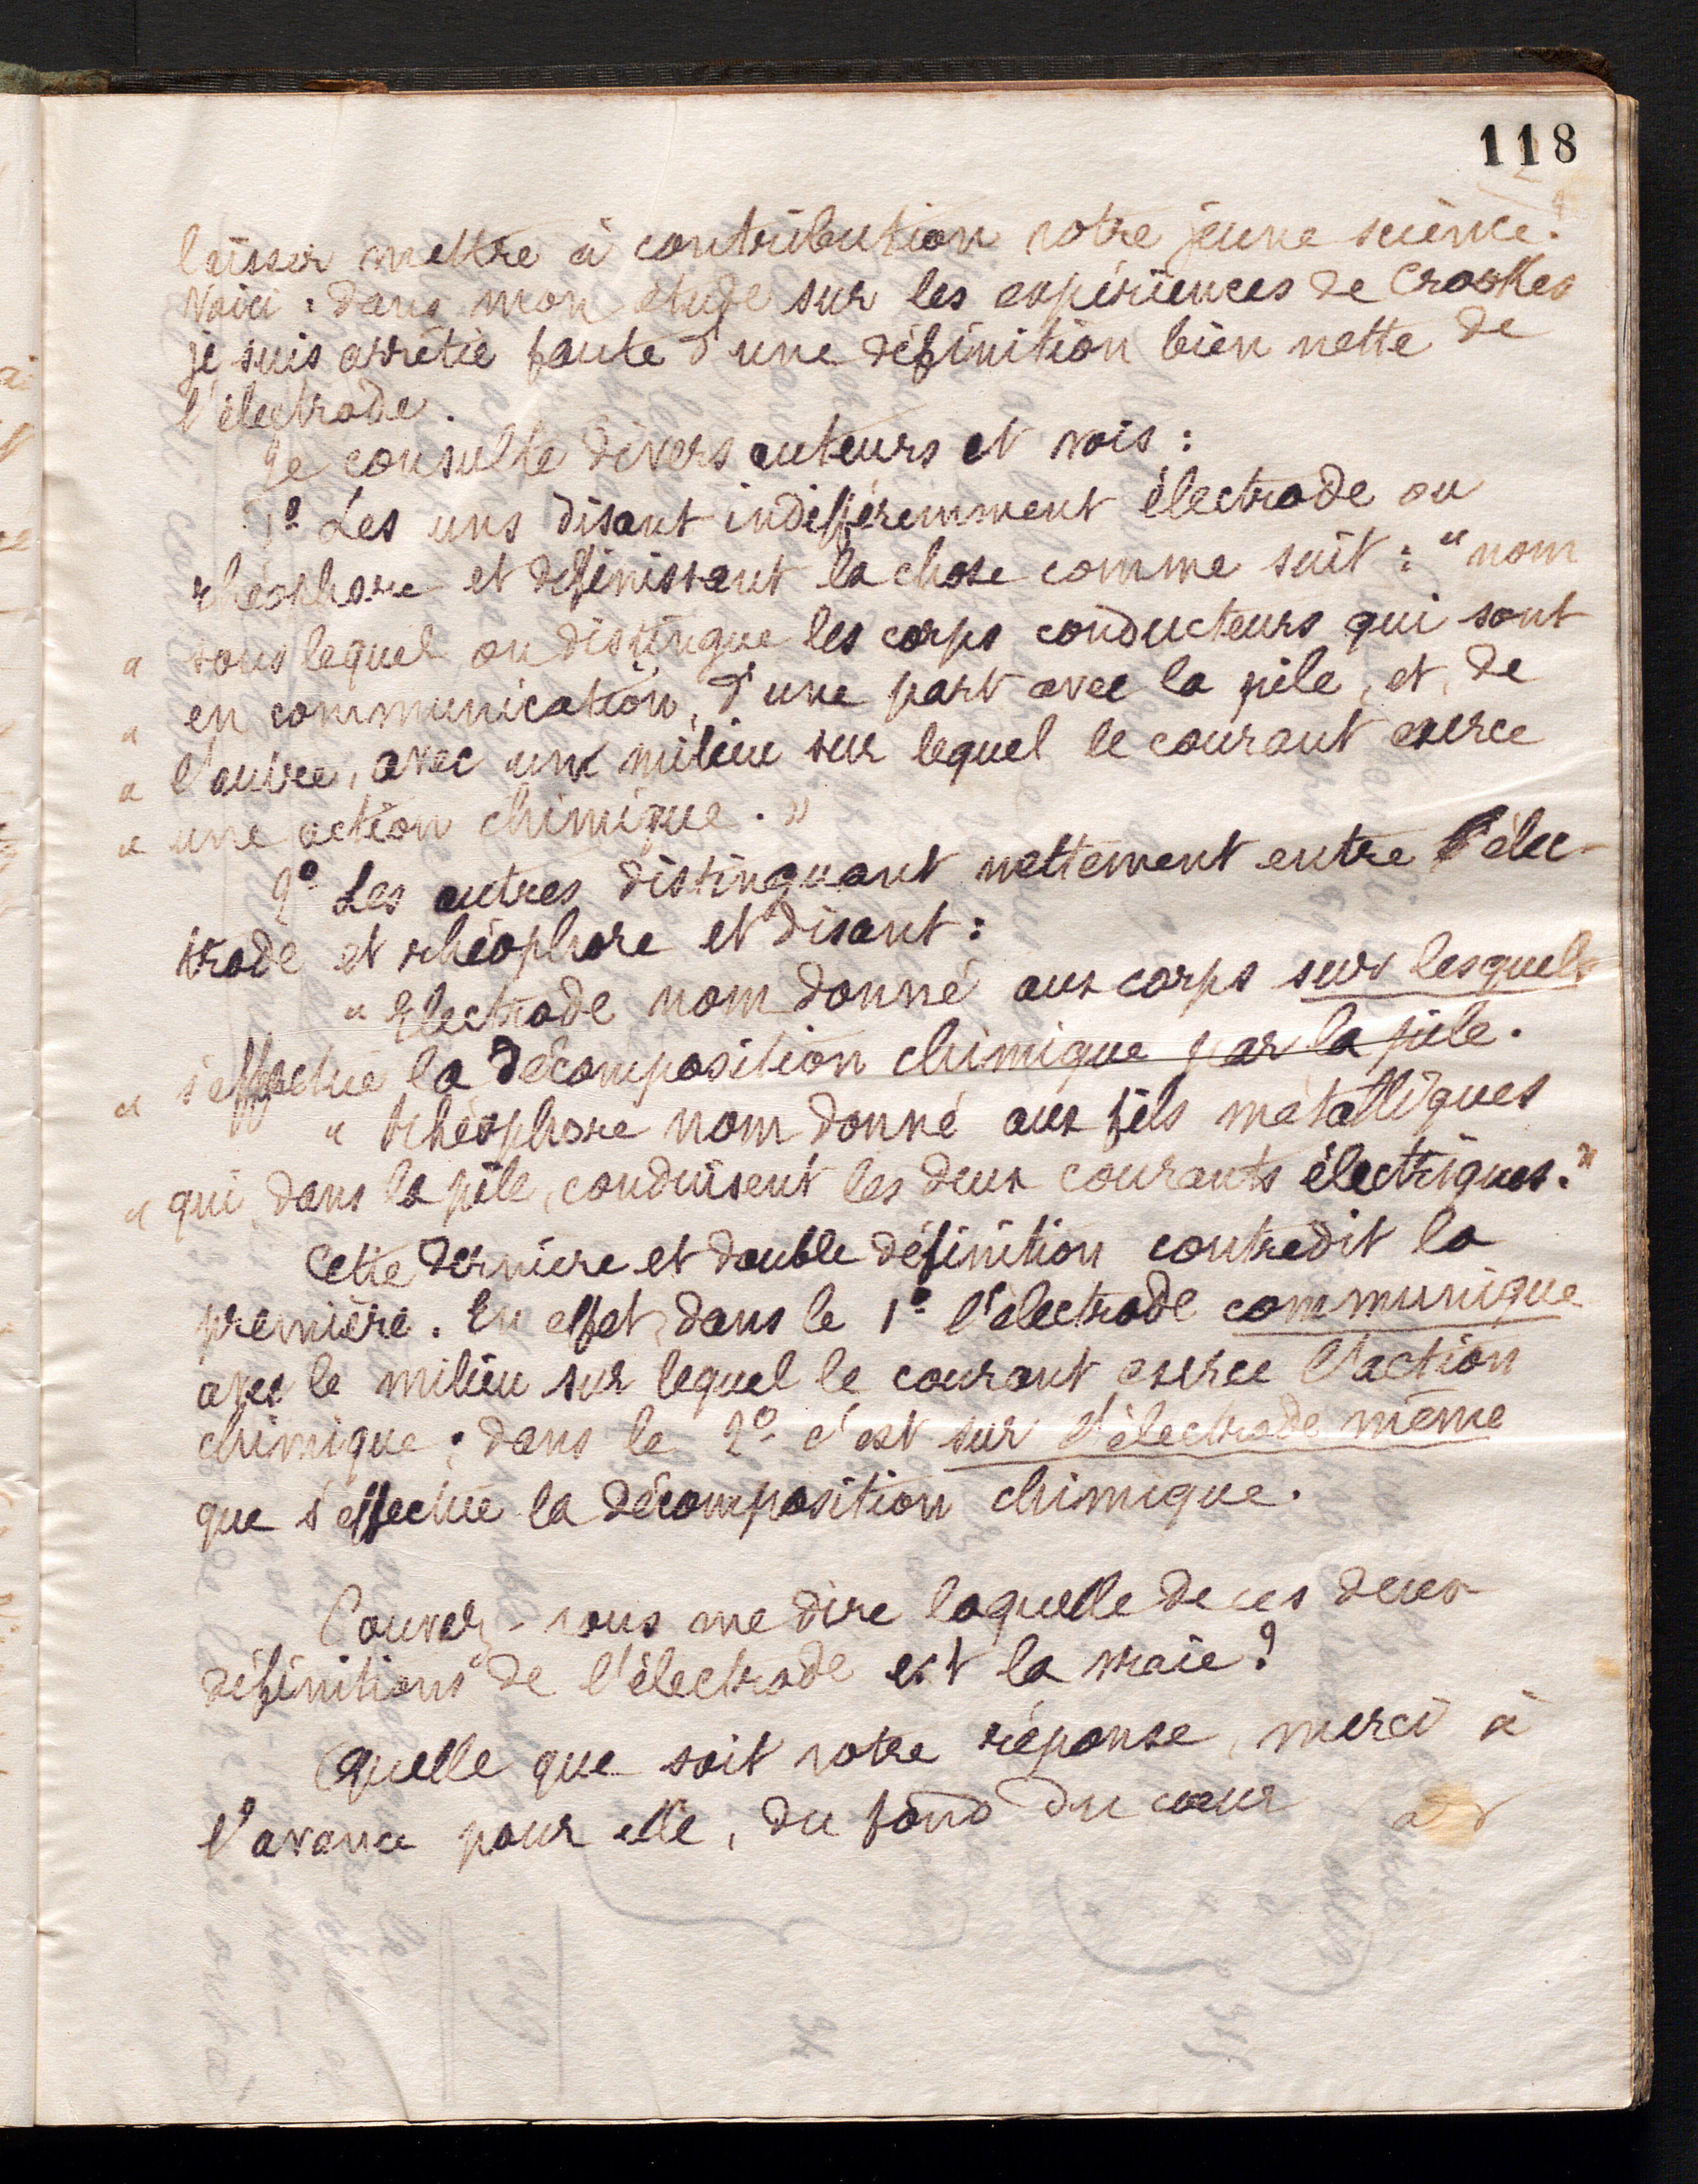 118
laisser mettre à contribution votre jeune science?
Voici : dans mon étude sur les expériences de Crookes
je suis arrêtée faute d'une définition bien nette de
l'électrode.
Je consulte divers auteurs et vois :
1º Les uns disant indifféremment électrode ou
rhéophore et définissant la chose comme suit : "nom
" sous lequel on distingue les corps conducteurs qui sont
" en communication, d'une part avec la pile, et, de
" l'autre, avec un milieu sur lequel le courant exerce
" une action chimique."
2º Les autres distinguant nettement entre l'élec-
trode et rhéophore et disant :
" Electrode nom donné aux corps sur lesquels
" s'effectue la décomposition chimique par la pile.
" Rhéophore nom donné aux fils métalliques
" qui, dans la pile, conduisent les deux courants électriques."
Cette dernière et double définition contredit la
première. En effet, dans le 1º l'électrode communique
avec le milieu sur lequel le courant exerce l'action
chimique ; dans le 2º c'est sur l'électrode même
que s'effectue la décomposition chimique.
Pouvez-vous me dire laquelle de ces deux
définitions de l'électrode est la vraie?
Quelle que soit votre réponse, merci à
l'avance pour elle, du fond du cœur